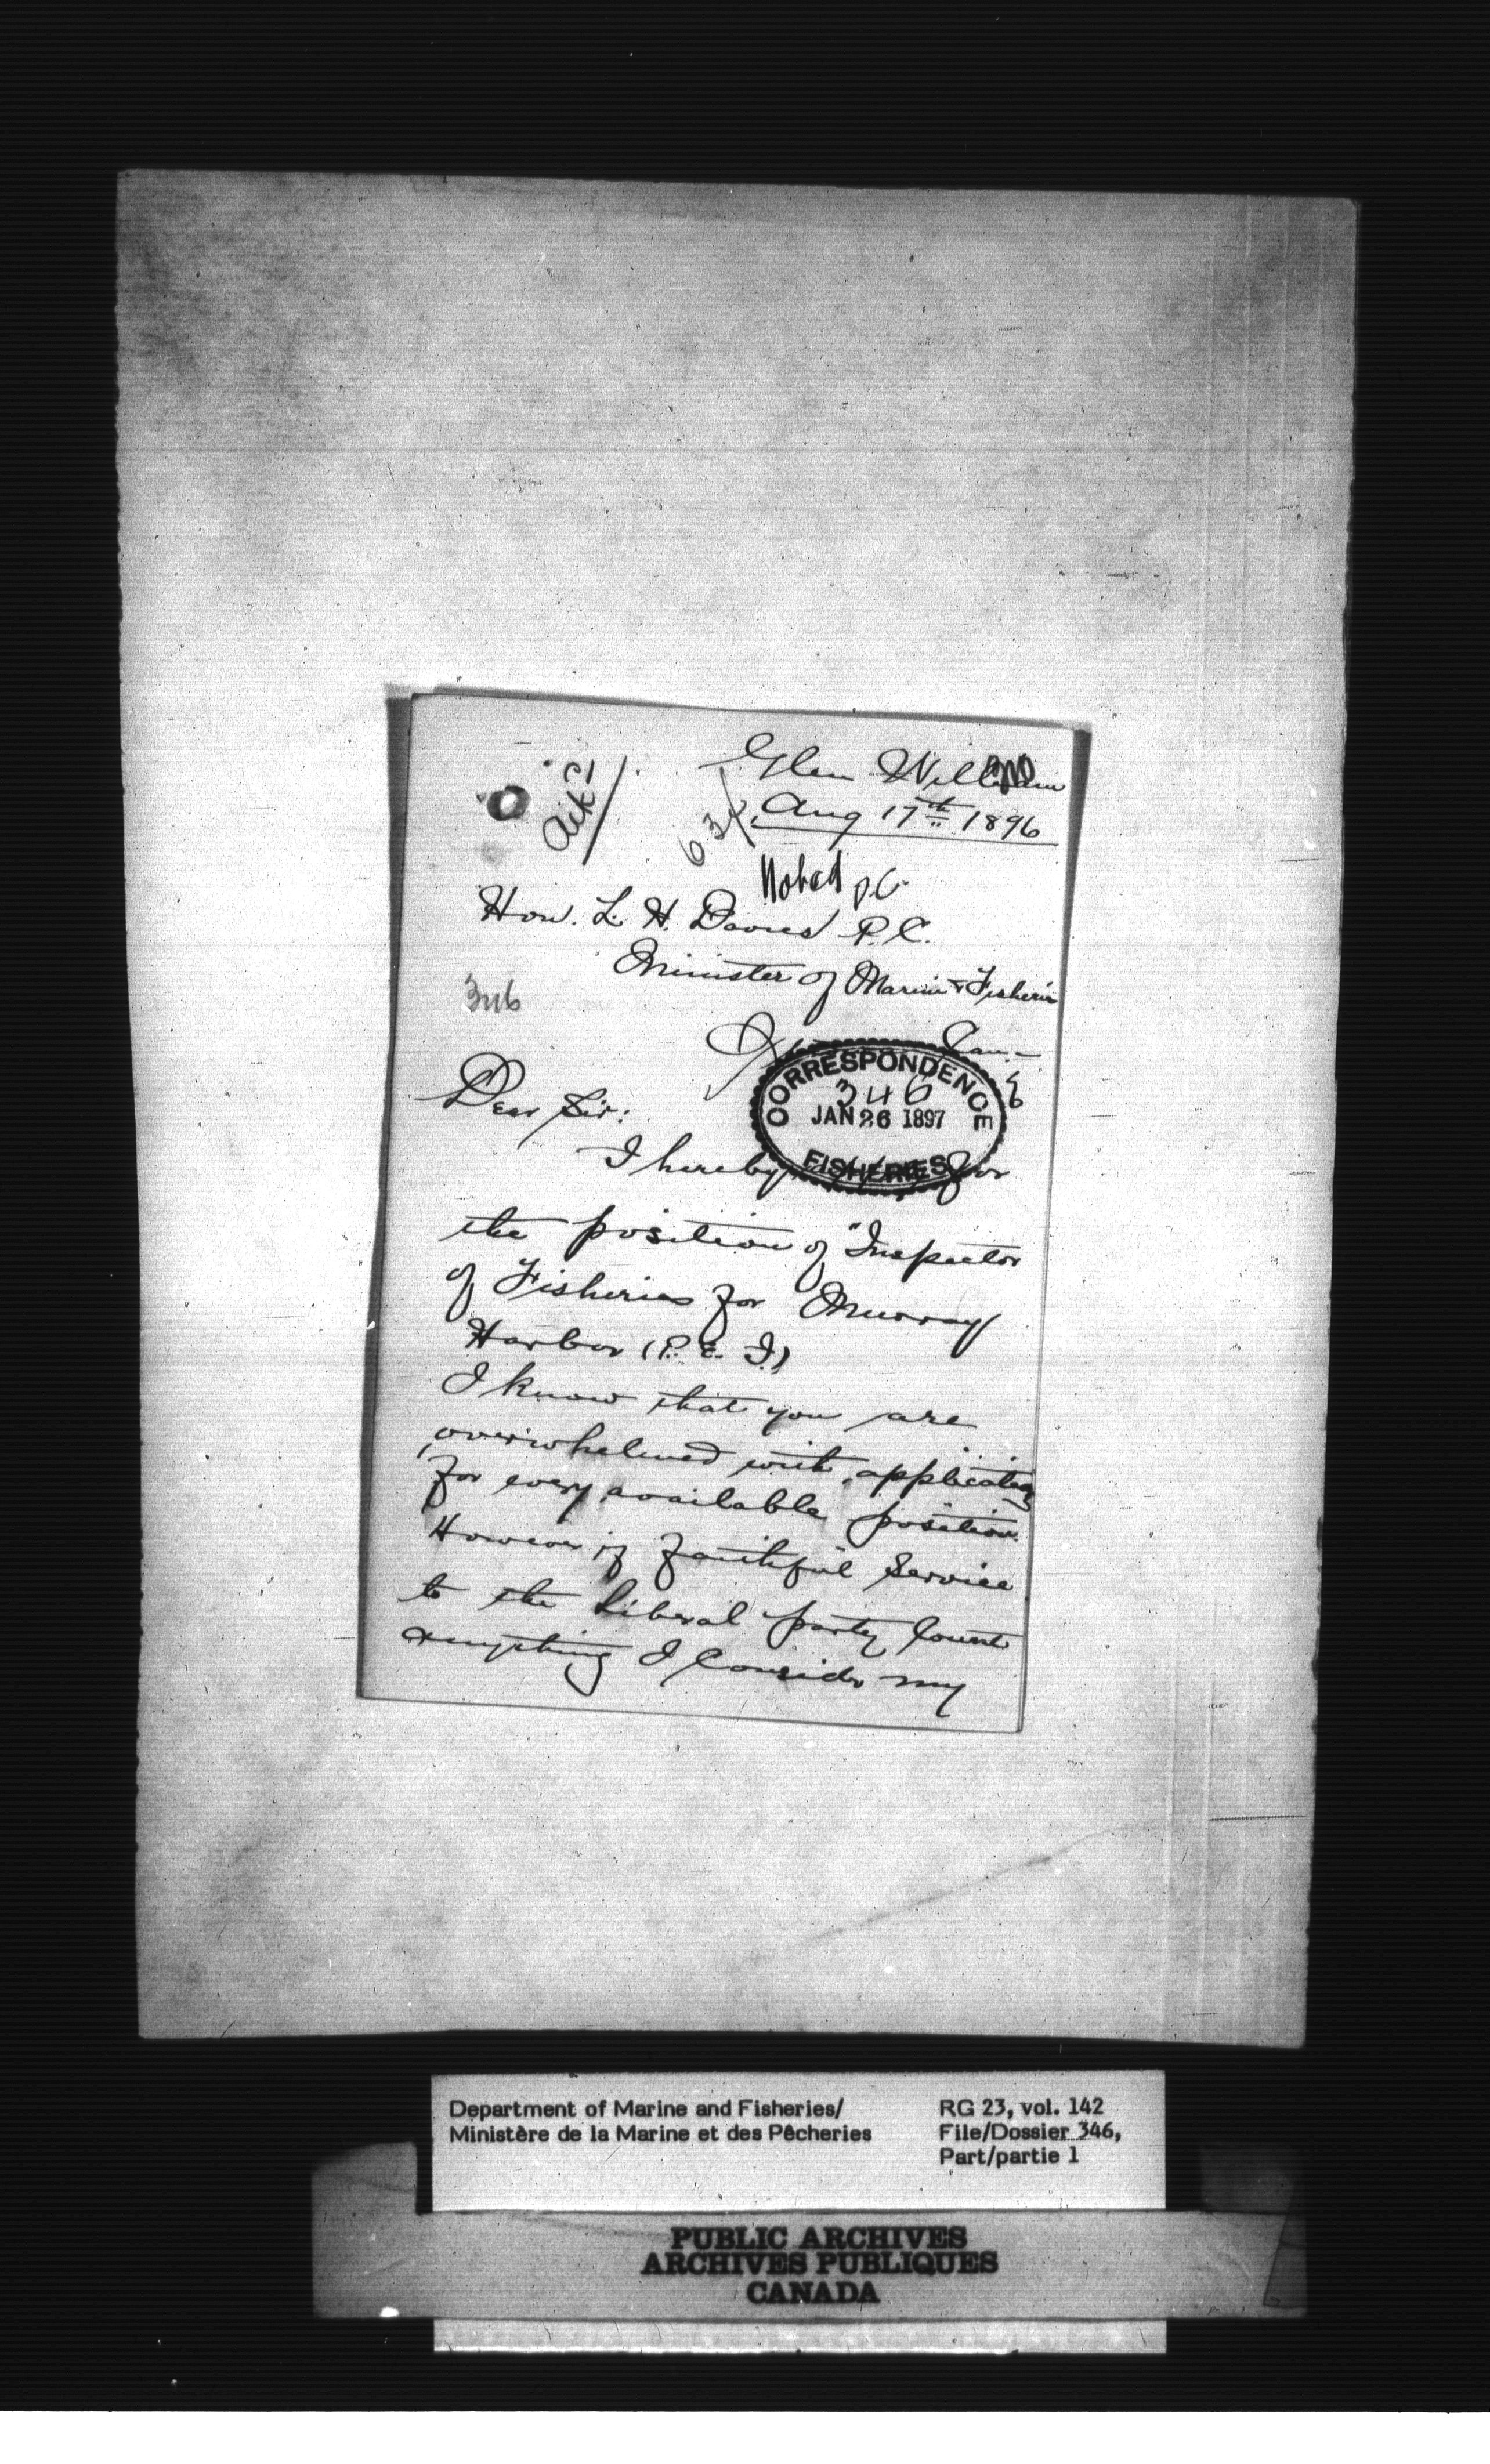 Glen William
Aug 17th 1896
Noted
Hon. L. H. Davies P.C.
Minister of Marine & Fisheries
346
Can.
CORRESPONDENCE
346
JAN 26 1897
FISHERIES
Dear Sir:
I hereby for
the position of "Inspector
of Fisheries for Murray
Harbor (P. E. I.)
I know that you are
overwhelmed with application
for every available position.
However if faithful service
to the Liberal party count
anything I consider my
Department of Marine and Fisheries/
Ministère de la Marine et des Pêcheries
RG 23, vol. 142
File/Dossier 346,
Part/partie 1
PUBLIC ARCHIVES
ARCHIVES PUBLIQUES
CANADA